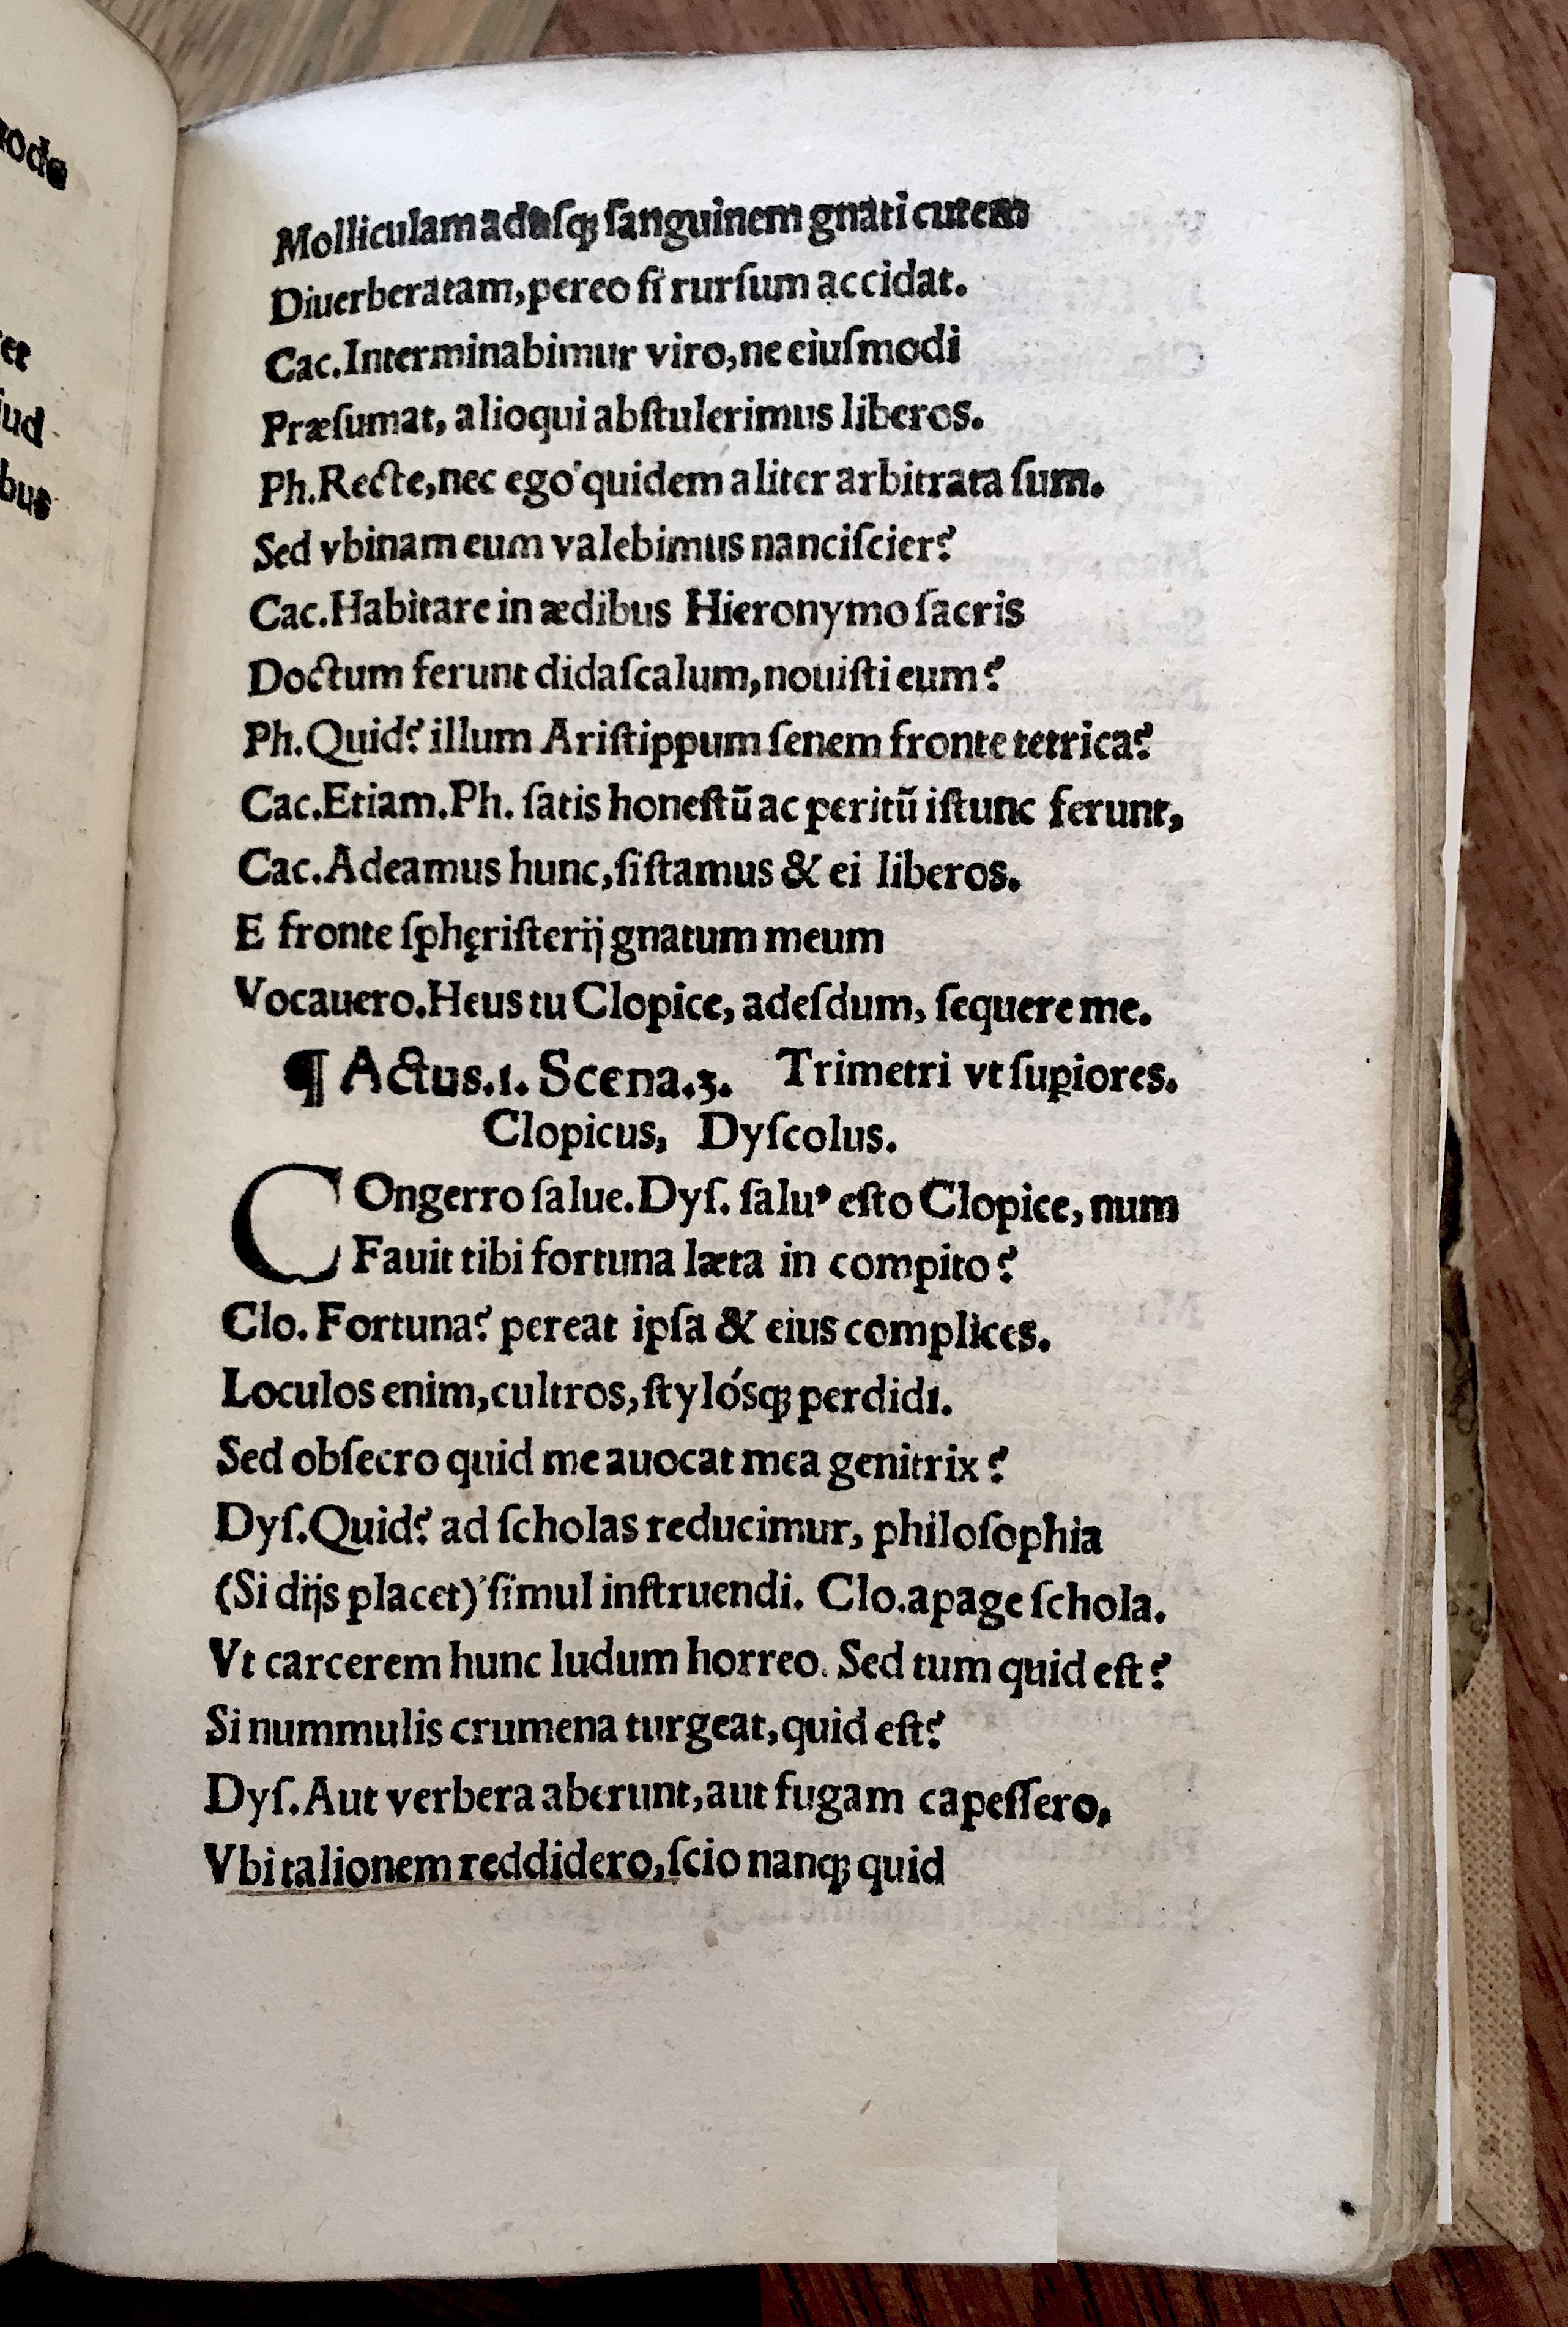 Molliculam adusqꝫ ſanguinem gnati cutem
Diuerberatam,pereo ſi rurſum accidat.
Cac.Interminabimur viro,ne eiuſmodi
Præſumat, alioqui abſtulerimus liberos.
Ph.Recte,nec ego quidem aliter arbitrata ſum.
Sed vbinam eum valebimus nanciſcier?
Cac.Habitare in ædibus Hieronymo ſacris
Doctum ferunt didaſcalum,nouiſti eum?
Ph.Quid? illum Ariſtippum ſenem fronte tetrica?
Cac.Etiam.Ph. ſatis honeſtū ac peritū iſtunc ferunt,
Cac.Adeamus hunc,ſiſtamus & ei liberos.
E fronte ſphęriſterij gnatum meum
Vocauero.Heus tu Clopice, adeſdum, ſequere me.
¶ Actus.1. Scena.3. Trimetri vt ſuꝑiores.
Clopicus, Dyſcolus.
COngerro ſalue.Dyſ. ſaluꝰ eſto Clopice, num
Fauit tibi fortuna læta in compito?
Clo. Fortuna? pereat ipſa & eius complices.
Loculos enim,cultros,ſtylósqꝫ perdidi.
Sed obſecro quid me auocat mea genitrix?
Dyſ.Quid? ad ſcholas reducimur, philoſophia
(Si dijs placet) ſimul inſtruendi. Clo.apage ſchola.
Vt carcerem hunc ludum horreo. Sed tum quid eſt?
Si nummulis crumena turgeat,quid eſt?
Dyſ.Aut verbera aberunt,aut fugam capeſſero,
Vbi talionem reddidero,ſcio nanqꝫ quid